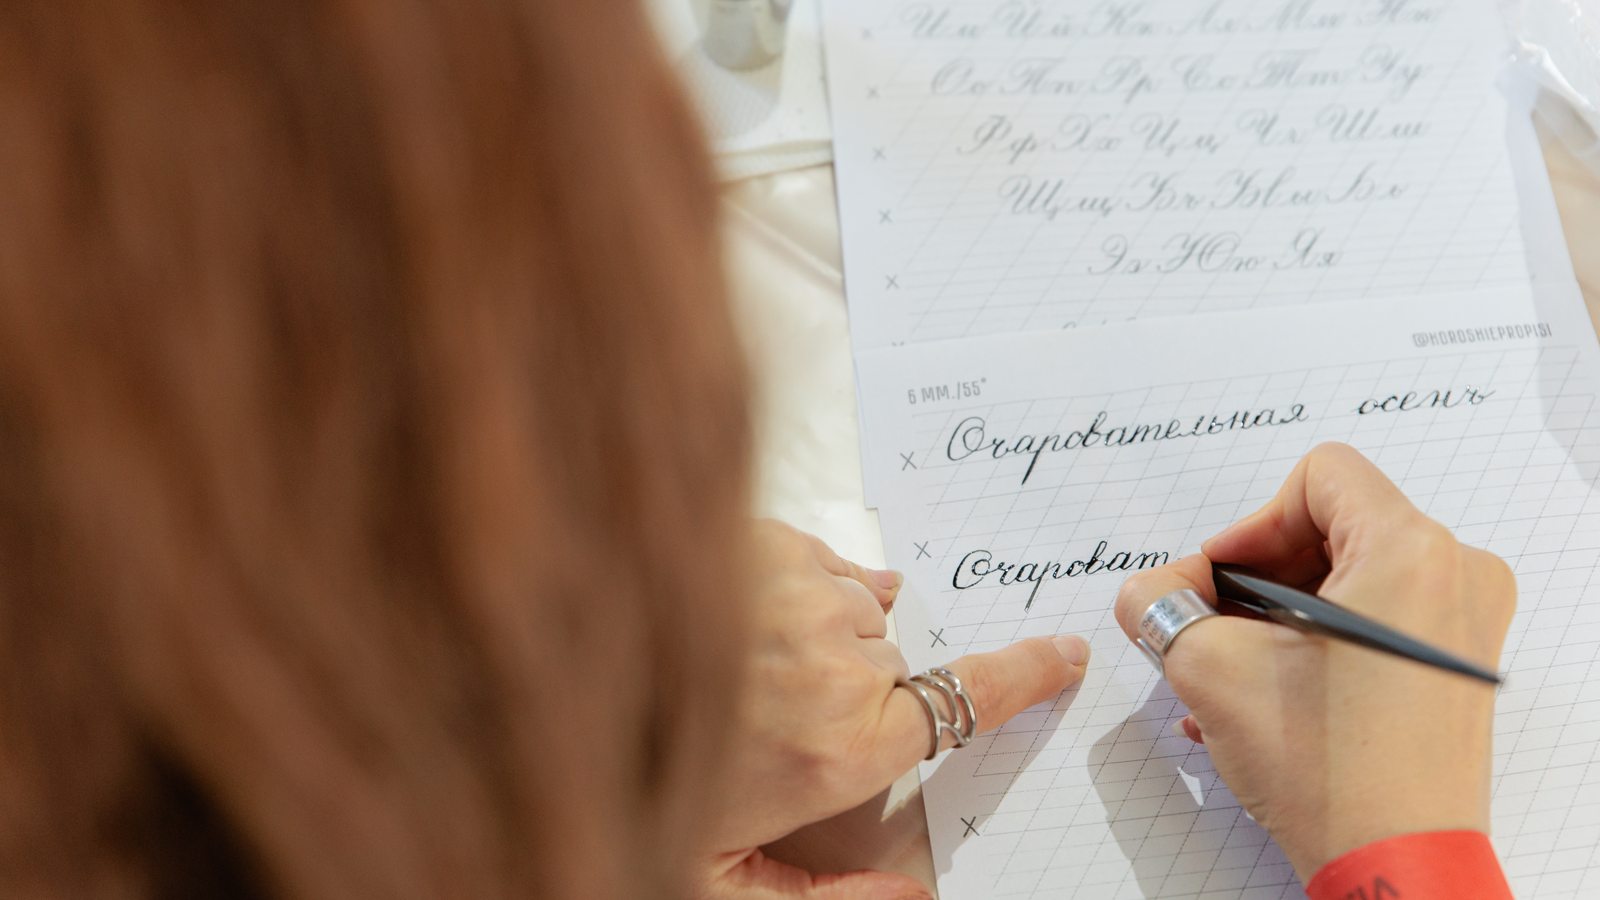 Ии Йй Кк Лл Мм Нн
Оо Пп Рр Сс Тт Уу
Фф Хх Цц Чч Шш
Щщ Ъъ Ыы Ьь
Ээ Юю Яя
@HOROSHIEPROPISI
6 ММ./55°
Очаровательная осень
Очароват